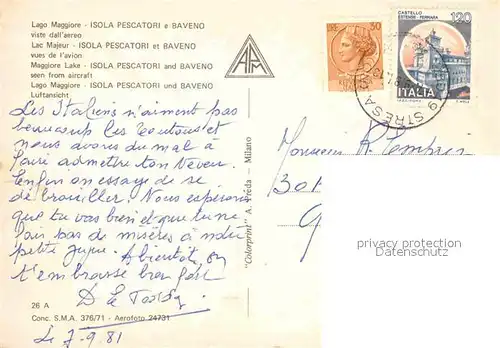 Lago Maggiore - ISOLA PESCATORI e BAVENO
viste dall'aereo
Lac Majeur - ISOLA PESCATORI et BAVENO
vues de l'avion
Maggiore Lake - ISOLA PESCATORI and BAVENO
seen from aircraft
Lago Maggiore - ISOLA PESCATORI und BAVENO
Luftansicht
Les Italiens n'aiment pas
beaucoup les toutous et
nous avons du mal à
faire admettre ton Neveu.
Enfin on essaye de se
débrouiller. Nous espérons
que tu vas bien et que tu ne
fais pas de misères à notre
petite Gyne. A bientôt, on
t'embrasse bien fort
26 A
Conc. S.M.A. 376/71 - Aerofoto 24731
Le 7-9.81
"Colorprint" A. Preda - Milano
30
CASTELLO
ESTENSE - FERRARA
120
ITALIA
STRESA
Monsieur R.
301
privacy protection
Datenschutz